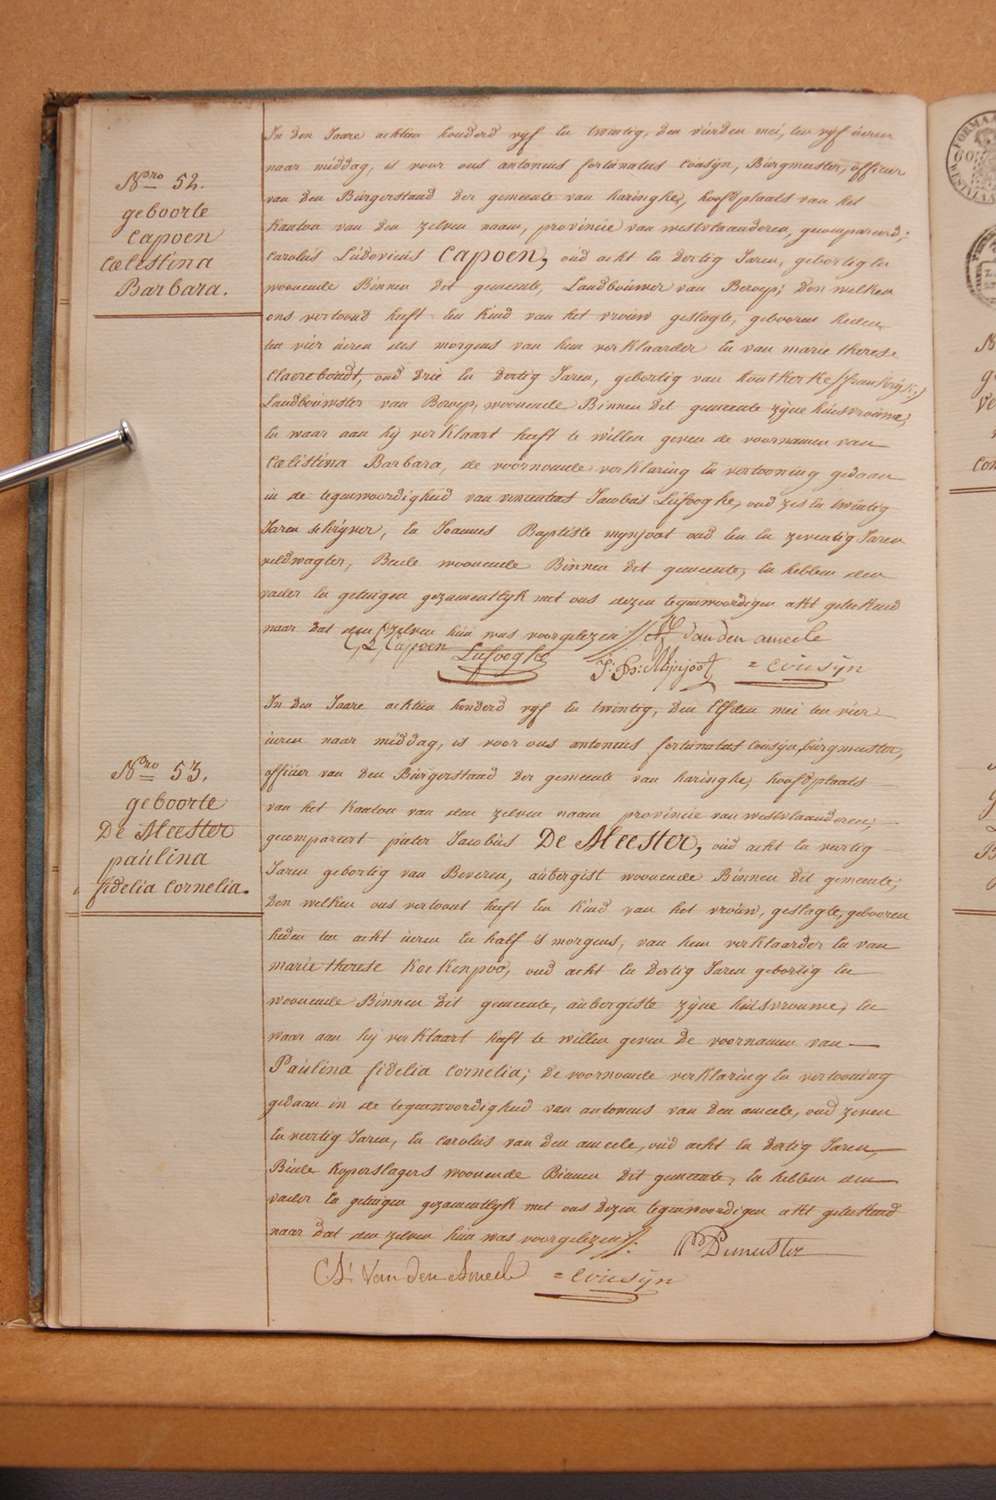 Nro 52.
geboorte
Capoen
Cœlestina
Barbara.
In den Jaare achtien honderd vyf en twintig, den vierden mei, ten vyf ùeren
naar middag, is voor ons antonius fortùnatus Cousyn, Bùrgmeester, officier
van den Bùrgerstand der gemeente van haringhe, hoofdplaats van het
Kanton van den zelven naam, provincie van westvlaanderen, gecompareerd;
Carolùs Lùdovicùs Capoen, oùd acht en dertig Jaren, gebortig en
woonende Binnen dit gemeente, Landboùwer van Beroep; den welken
ons vertoond heeft een kind van het vroùw geslagte, gebooren heden
ten vier ùeren des morgens van hem verklaarder en van marie therese
Claerebondt, oùd drie en dertig Jaren, gebortig van houtkerke /:frankryk:/
Landboùwster van Beroep, woonende Binnen dit gemeente zyne hùisvroùwe;
en waar aan hy verklaart heeft te willen geven de voornamen van
Cœlestina Barbara, de voornoemde verklaring en vertooning gedaan
in de tegenwoordigheid van vincentus Jacobùs Lùfooghe, oùd zes en twintig
Jaren schryver, en Joannes Baptiste mynjoot oud een en zeventig Jaren
veldwagter, Beide woonende Binnen dit gemeente, en hebben den
vader en getuigen gezamentlyk met ons dezen tegenwoordigen akt geteekend
naar dat den zelven hùn was voorgelezen //. Vanden ameele
C, L, Capoen Lùfooghe J: Bs: Mijnjoot = coùsÿn
Nro 53.
geboorte
De Meester
paùlina
fidelia Cornelia.
In den Jaare achtien honderd vyf en twintig, den Elfden mei ten vier
ùeren naar middag, is voor ons antonius fortùnatus Cousyn, bùrgmeester,
officier van den Bùrgerstand der gemeente van haringhe, hoofdplaats
van het Kanton van den zelven naam provincie van westvlaanderen;
gecomparert pieter Jacobùs De Meester, oùd acht en veertig
Jaren gebortig van Beveren, aùbergist woonende Binnen dit gemeente;
Den welken ons vertoont heeft een kind van het vroùw, geslagte, gebooren
heden ten acht ùeren en half 's morgens, van hem verklaarder en van
marie therese Koekenpoo, oùd acht en dertig Jaren gebortig en
woonende Binnen dit gemeente, aùbergiste zyne hùisvrouwe, en
waar aan hy verklaart heeft te willen geven de voornamen van
Paùlina fidelia Cornelia; de voornoemde verklaring en vertooning
gedaan in de tegenwoordigheid van antonius van den ameele, oud zeven
en veertig Jaren, en Carolus van den ameele, oùd acht en dertig Jaren,
Beide koperslagers woonende Binnen dit gemeente, en hebben den
vader en getuigen gezamentlyk met ons dezen tegenwoordigen akt geteekend
naar dat den zelven hùn was voorgelezen //. Demeester
Van den Ameele = coùsÿn